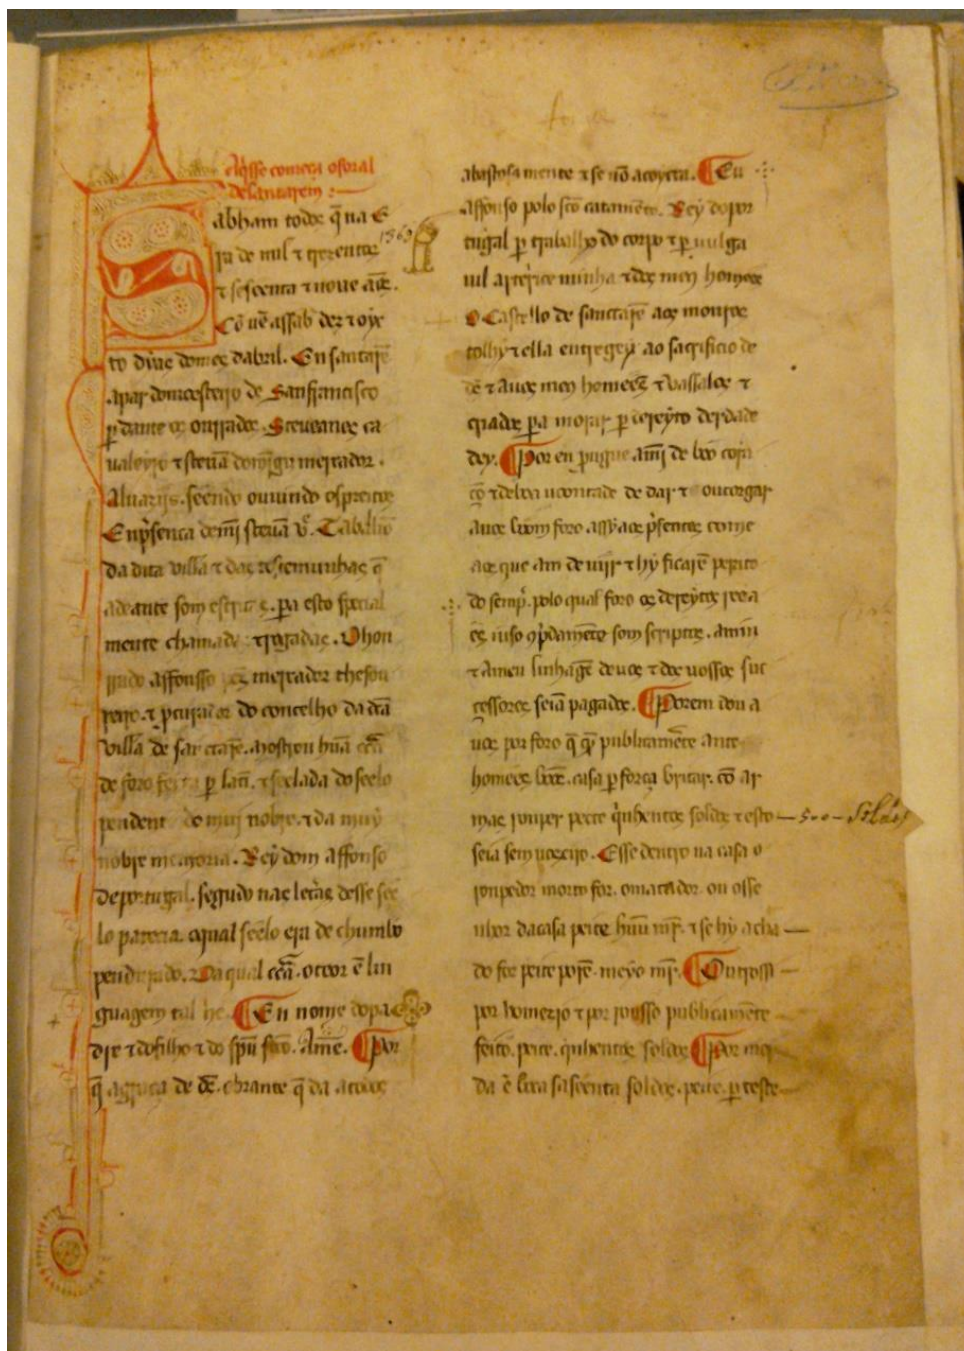 Aq̃sse começa o foral
de santarem :~
Sabham todos q̃ na E
ra de mil τ trezentos 1369
τ sesseenta τ noue ãnos.
Cõuẽ assab dez τ oyto
to dias domes dabril. En santarẽ
apar do moesteyro de San ffrancisco
ꝑdante os onrrados. Steuẽanes ca
ualeyro τ steuã domĩguz mercador.
Aluazijs. seendo ouuindo os preitos
En p̃sença de mĩ steuã. Taballiõ
da dita villa τ das testemunhas q̃
adeante som escritas. pa esto special
mente chamadas τ rogadas. O hon
rrado affonsso mercador thesou
reyro. τ ꝓcurador do concelho da dc̃a
villa de sanctarẽ. mostrou hũa cr̃a
de foro feita ꝑ latĩ. τ seelada do seelo
pendente de muj nobre. τ da muy
nobre memoria. Rey dom affonso
de portugal. segũdo nas letr̃as desse see
lo parecia. o qual seelo era de chumbo
pendorado. Da qual cr̃a. o teor ẽ lin
guagem tal he. ¶ En nome do pa
dre τ do filho τ do sp̃u sc̃o. Amẽ. ¶ Por
q̃ a graça de dẽ. obrante q̃ da a todos
abastosamente τ se nõ acoyta. ¶ Eu
affonso polo seu catamẽto. Rey de por
tugal ꝑ traballyo do corpo τ ꝑ uulga
uil arteyrice minha τ dos meus homẽes
o Castello de sanctarẽ aos mouros
tolhy τ ella entreguey ao sacrificio de
dẽ τ auos meus homẽes τ vassalos τ
criados ꝑa morar ꝑ dereyto derdade
dey. ¶ Por en prougue a mỹ de bõo cora
çõ τ de bõa uoontade de dar τ outorgar
auos boom foro assy aos p̃sentes come
aos que am de uijr τ hy ficarẽ perpito
do semp̃. polo qual foro os dereytos rea
es iuso cõp̃damẽte som scriptos. a mi
τ a meu linhagẽ de uos τ dos uossos suc
cessores seiã pagados. ¶ Porem dou a
uos por foro q̃ q̃m publicamẽte ante
homẽes bõos. casa ꝑ força britar. cõ ar
mas romper peite q̃nhentos soldos τ esto — 500 — Soldos
seia sem uozeiro. E sse dentro na casa o
rompedor morto for. o matador ou osse
nhor da casa peite hũu mr̃. τ se hy acha —
do foe peite porẽ. meyo mr̃. ¶ Outrossi —
por homezio τ por rousso publicamẽte
feito. peite. q̃nhentos soldos ¶ Por mer
da ẽ boca sasẽenta soldos. peite. ꝑ teste —